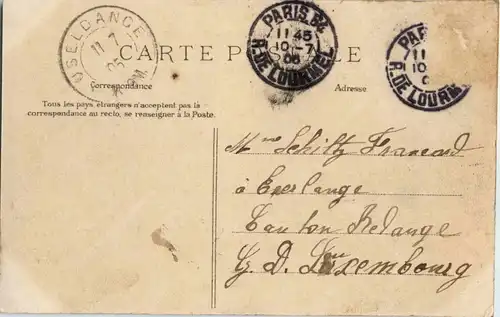 USELDANGE
11 7
05
PARIS 84
11 45
10-7
05
R. DE LOURMEL
PAR
11
10
R. DE LOURM
CARTE POSTALE
Correspondance
Adresse
Tous les pays étrangers n'acceptent pas la
correspondance au recto, se renseigner à la Poste.
Mme Schiltz Francard
à Everlange
Canton Relange
G. D. Luxembourg